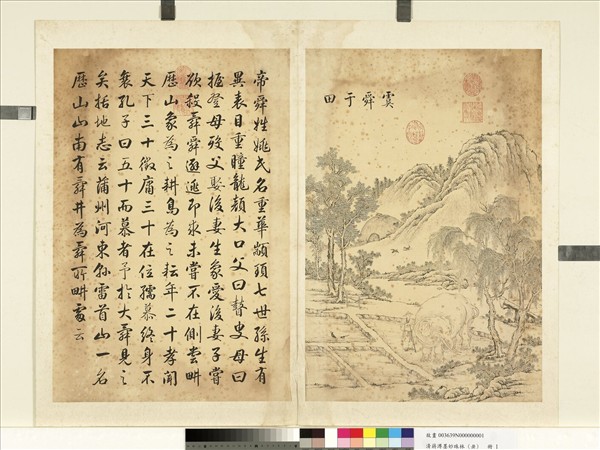 虞舜于田
帝舜姓姚氏名重華顓頊七世孫生有
異表目重瞳龍顏大口父曰瞽叟母曰
握登母歿父娶後妻生象愛後妻子嘗
欲殺舜舜遜避即求未嘗不在側嘗畊
歷山象為之耕鳥為之耘年二十孝聞
天下三十徵庸三十在位孺慕終身不
衰孔子曰五十而慕者予於大舜見之
矣括地志云蒲州河東縣雷首山一名
歷山山南有舜井為舜所畊處云
故畫 003639N000000001
清蔣溥墨妙珠林